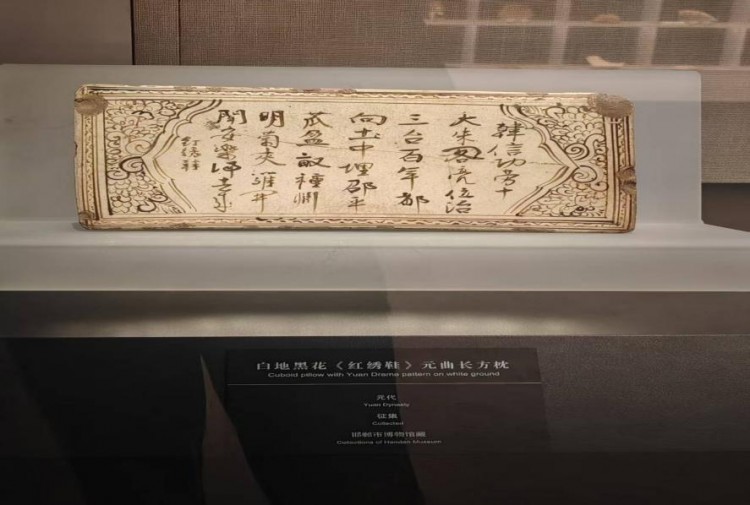 韓信功勞十
大朱閣亮位治
三台百年都
向土中埋邵平
瓜盈畝種淵
明菊夾籬開
聞安樂歸去来
紅綉鞋
白地黑花《红绣鞋》元曲长方枕
Cuboid pillow with Yuan Drama pattern on white ground
元代
Yuan Dynasty
征集
Collected
邯郸市博物馆藏
Collections of Handan Museum